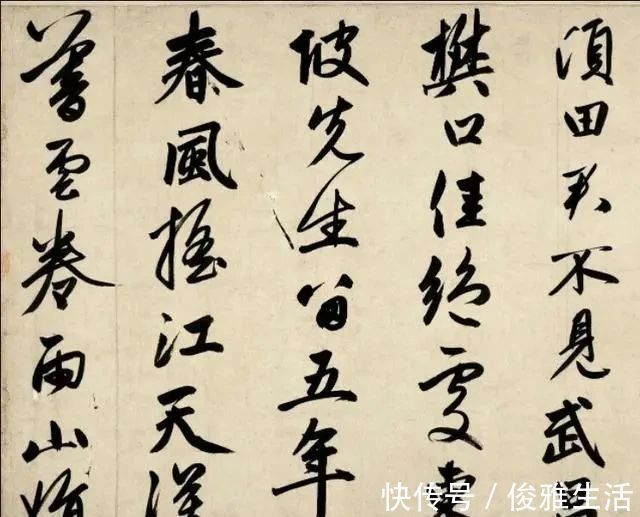 頃田君不見武
樊口佳絕處東
坡先生留五年
春風搖江天漠
暮雲卷雨山
快传号 / 俊雅生活